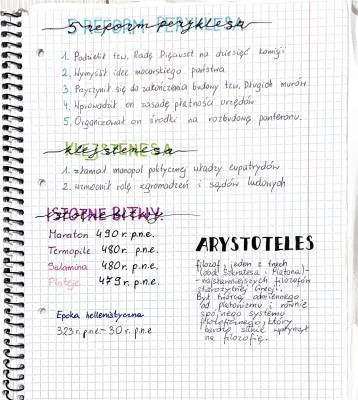 5 REFORM PERYKLESA
5 reform peryklesa
1. Podzielił tzw. Radę Pięciuset na dziesięć komisji
2. Wymyślił idee mocarskiego państwa
3. Przyczynił się do zakończenia budowy tzw. Długich murów
4. Wprowadził on zasadę płatności urzędów
5. Organizował on środki na rozbudowę panteronu.
KLEJSTENESA
klejstenesa
1. złamał monopol politycznej władzy eupatrydów
2. wzmocnił rolę zgromadzeń i sądów ludowych
ISTOTNE BITWY
istotne bitwy
Maraton 490 r. p.n.e.
Termopile 480 r. p.n.e.
Salamina 480 r. p.n.e.
Plateje 479 r. p.n.e.
Epoka hellenistyczna
323 r. p.n.e - 30 r. p.n.e
ARYSTOTELES
filozof, jeden z trzech
(obok Sokratesa i Platona) -
- najsławniejszych filozofów
starożytnej Grecji.
Był twórcą odmiennego
od platonizmu i równie
spójnego systemu
filozoficznego, który
bardzo silnie wpłynął
na filozofię.